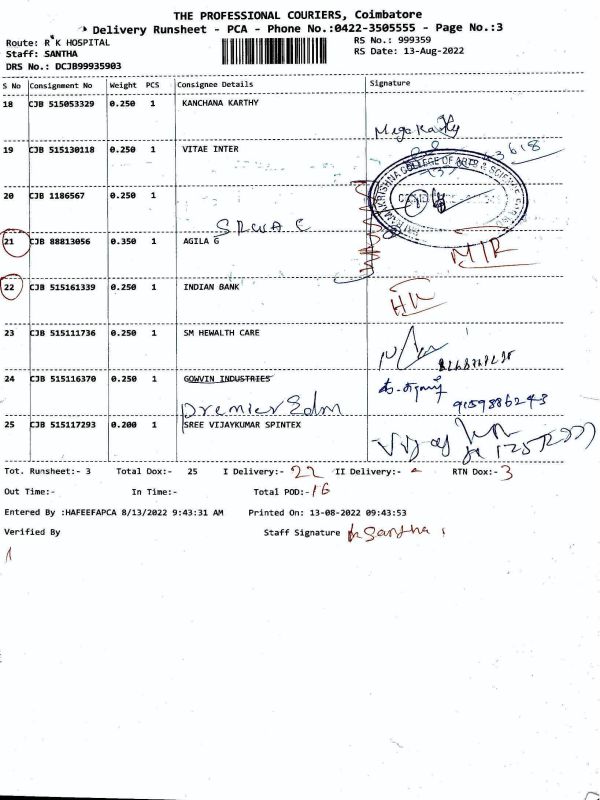 THE PROFESSIONAL COURIERS, Coimbatore
Delivery Runsheet - PCA - Phone No.:0422-3505555 - Page No.:3
Route: R K HOSPITAL
RS No.: 999359
Staff: SANTHA
RS Date: 13-Aug-2022
DRS No.: DCJB99935903
S No Consignment No Weight PCS Consignee Details Signature
18 CJB 515053329 0.250 1 KANCHANA KARTHY
Mega Karthy
19 CJB 515130118 0.250 1 VITAE INTER
KRISHNA COLLEGE OF ARTS & SCIENCE
20 CJB 1186567 0.250 1
21 CJB 88813056 0.350 1 AGILA G
22 CJB 515161339 0.250 1 INDIAN BANK
23 CJB 515111736 0.250 1 SM HEWALTH CARE
24 CJB 515116370 0.250 1 GOWVIN INDUSTRIES
9159886243
Premier Edm
25 CJB 515117293 0.200 1 SREE VIJAYKUMAR SPINTEX
Vijay
Tot. Runsheet:- 3 Total Dox:- 25 I Delivery:- 22 II Delivery:- RTN Dox:- 3
Out Time:- In Time:- Total POD:- 16
Entered By :HAFEEFAPCA 8/13/2022 9:43:31 AM Printed On: 13-08-2022 09:43:53
Verified By Staff Signature Santha